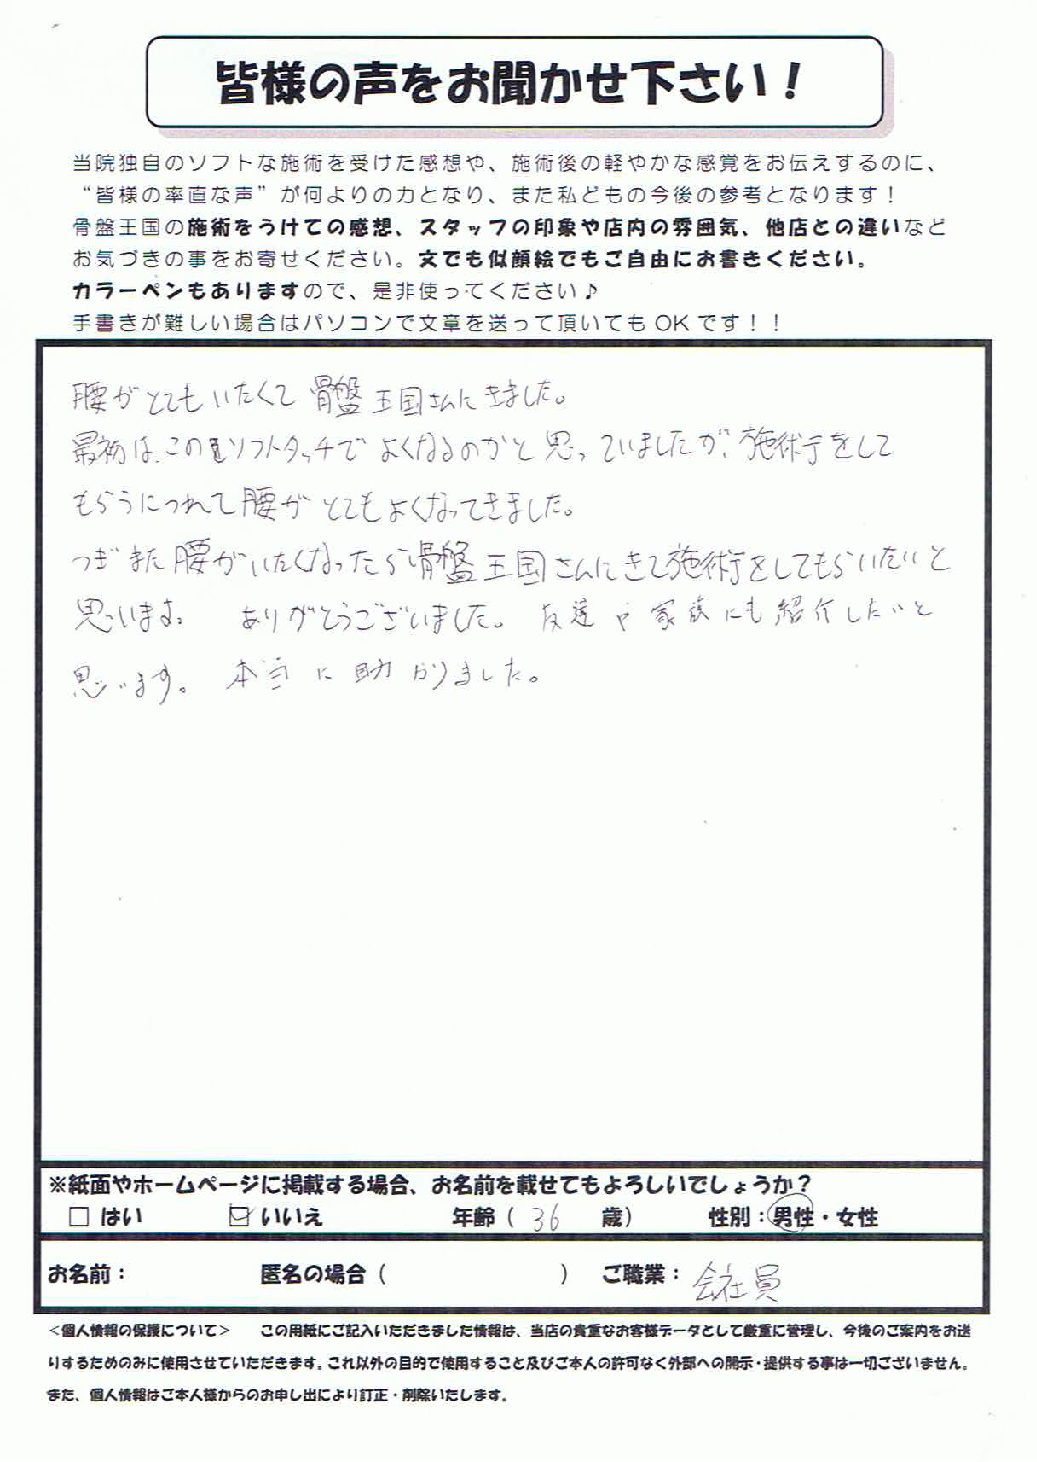 皆様の声をお聞かせ下さい！
当院独自のソフトな施術を受けた感想や、施術後の軽やかな感覚をお伝えするのに、
“皆様の率直な声”が何よりの力となり、また私どもの今後の参考となります！
骨盤王国の施術をうけての感想、スタッフの印象や店内の雰囲気、他店との違いなど
お気づきの事をお寄せください。文でも似顔絵でもご自由にお書きください。
カラーペンもありますので、是非使ってください♪
手書きが難しい場合はパソコンで文章を送って頂いてもOKです！！
腰がとてもいたくて骨盤王国さんにきました。
最初は、このソフトタッチでよくなるのかと思っていましたが、施術をして
もらうにつれて腰がとてもよくなってきました。
つぎまた腰がいたくなったら骨盤王国さんにきて施術をしてもらいたいと
思います。 ありがとうございました。 友達や家族にも紹介したいと
思います。 本当に助かりました。
※紙面やホームページに掲載する場合、お名前を載せてもよろしいでしょうか？
□ はい ☑ いいえ 年齢（ 36 歳） 性別：男性・女性
お名前： 匿名の場合（ ） ご職業：会社員
＜個人情報の保護について＞ この用紙にご記入いただきました情報は、当店の貴重なお客様データとして厳重に管理し、今後のご案内をお送
りするためのみに使用させていただきます。これ以外の目的で使用すること及びご本人の許可なく外部への開示・提供する事は一切ございません。
また、個人情報はご本人様からのお申し出により訂正・削除いたします。